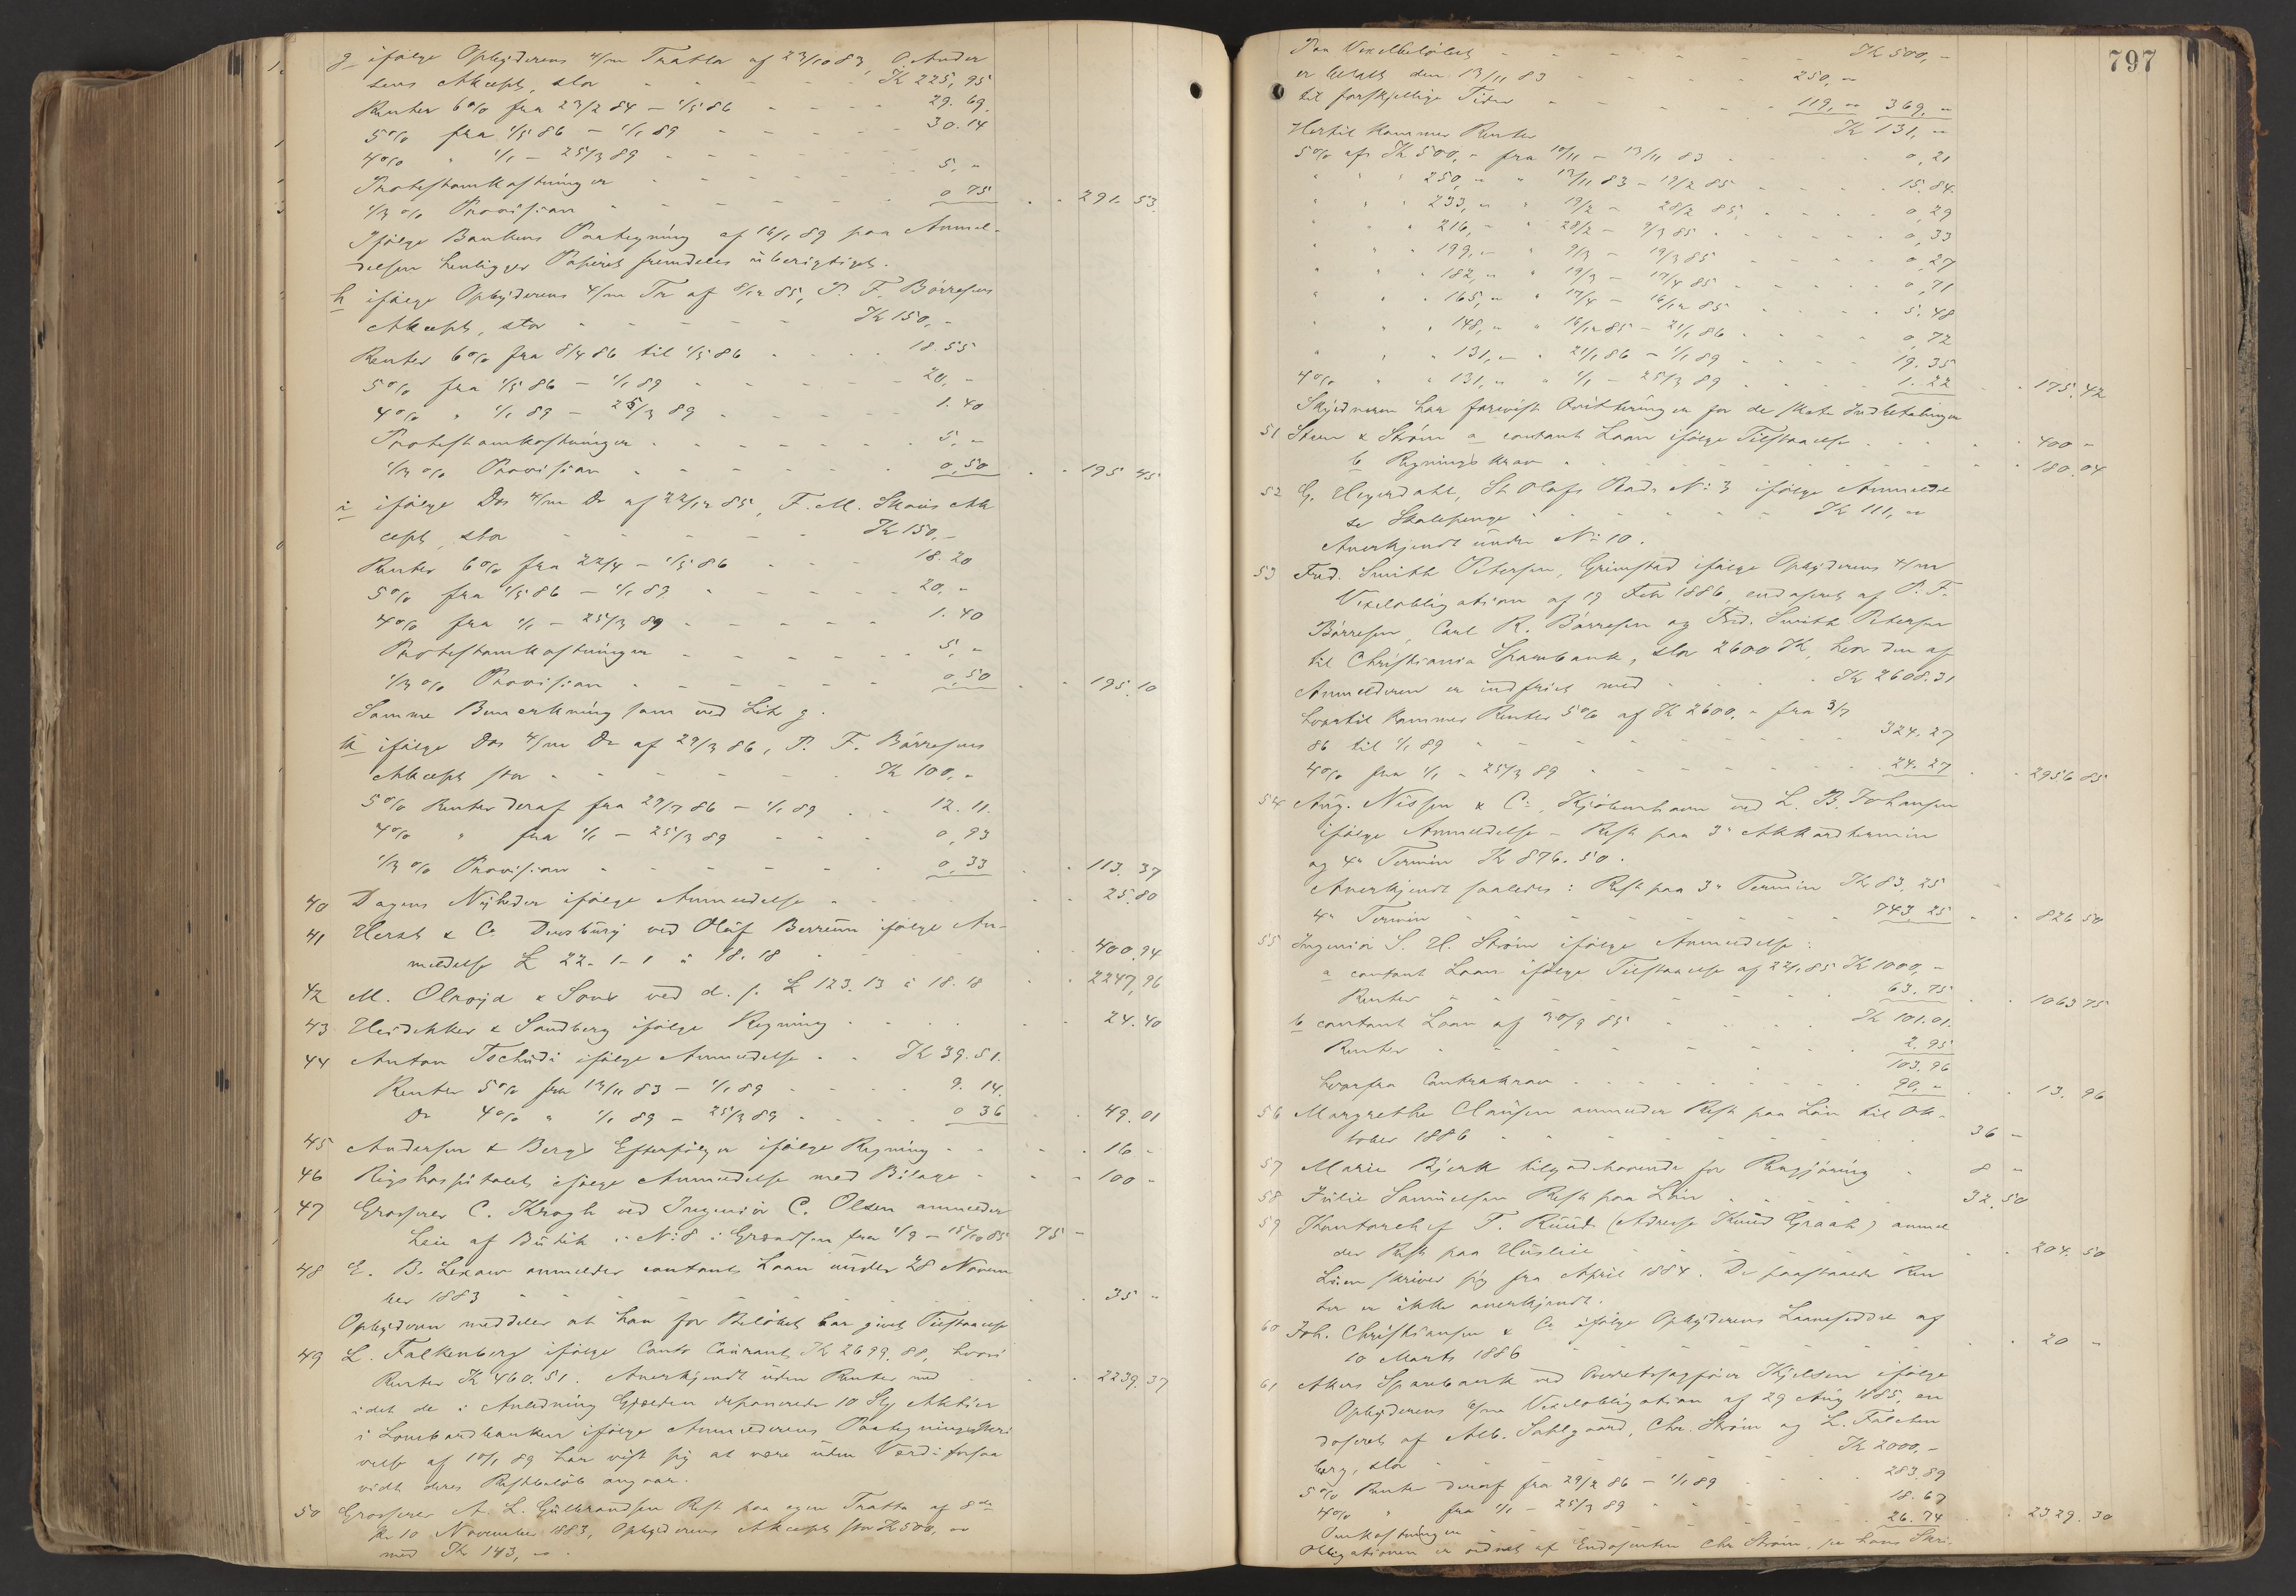 g ifølge Opbyderens 4/m Tratta af 23/10 83, O. Ander
sens Akcept, stor - - - Kr 225,95
Renter 6% fra 23/2 84 - 1/5 86 - - - 29.69.
5% fra 1/5 86 - 1/1 89 - - - 30.14
4% " 1/1 - 25/3 89 - - -
Protestomkostninger - - - 5,"
1/3 % Provision - - - 0.75 - - 291.53.
Ifølge Bankens Paategning af 16/1 89 paa Anmel-
delsen henligger Papiret fremdeles uberigtiget.
h ifølge Opbyderens 4/m Tr af 8/12 85, P. F. Börresens
Akcept, stor - - - Kr 150,-
Renter 6% fra 8/4 86 til 1/5 86 - - - 18.55
5% fra 1/5 86 - 1/1 89 - - - 20,-
4% " 1/1 89 - 25/3 89 - - - 1.40
Protestomkostninger - - - 5,-
1/3 % Provision - - - 0,50 - - 195 45
i ifølge Dos 4/m Do af 22/12 85, F. M. Skovs Ak
cept, stor - - - Kr 150,-
Renter 6% fra 22/4 - 1/5 86 - - - 18.20
5% fra 1/5 86 - 1/1 89 - - - 20,-
4% fra 1/1 - 25/3 89 - - - 1.40
Protestomkostninger - - - 5,-
1/3 % Provision - - - 0,50 - - 195.10
Samme Bemerkning som ved Lit g.
k ifølge Dos 4/m Do af 29/3 86, P. F. Börresens
Akcept stor - - - Kr 100,-
5% Renter deraf fra 29/7 86 - 1/1 89 - - 12.11.
4% " fra 1/1 - 25/3 89 - - - 0,93
1/3 % Provision - - - 0,33 - - 113.37
40 Dagens Nyheder ifølge Anmeldelse - - - 25.80
41 Hersch & Co. Dewsbury ved Oluf Berrum ifølge An-
meldelse £ 22-1-1 à 18.18 - - - 400.94
42 M. Olroyd & Sons ved d. s. £ 123.13 à 18.18 - - 2247,96
43 Heidekker & Sandberg ifølge Regning - - - 24.40
44 Anton Tschudi ifølge Anmeldelse - - Kr 39.51.
Renter 5% fra 13/11 83 - 1/1 89 - - - 9.14.
Do 4% " 1/1 89 - 25/3 89 - - - 0 36 - - 49.01
45 Andersen & Bergs Efterfølger ifølge Regning - - - 16 -
46 Rigshospitalet ifølge Anmeldelse med Bilage - - - 100 -
47 Grosserer C. Krogh ved Ingeniør C. Olsen anmelder
Leie af Butik i No 8 i Grændsen fra 1/9 - 15/10 85 75 -
48 E. B. Lexow anmelder contant Laan under 28 Novem
ber 1883 - - - 35 -
Opbyderen meddeler at han for Beløbet har givet Tilstaaelse
49 L. Falkenberg ifølge Conto Courant Kr 2699.88, hvori
Renter Kr 460.51. Anerkjendt uden Renter med - - 2239.37
idet de i Anledning Gjælden deponerede 10 Stk Aktier
i Lombardbanken ifølge Anmelderens Paategningsskri
velse af 10/1 89 har vist sig at være uden Værdi forsaa
vidt deres Restbeløb angaar.
50 Grosserer A. L. Gulbrandsen Rest paa egen Tratta af 8de
pr 10 November 1883, Opbyderens Akcept stor Kr 500,-
med Kr 143,-.
797
Paa Vexelbeløbet - - - Kr 500,-
er betalt den 13/11 83 - - - 250,-
til forskjellige Tider - - - 119,- 369,-
Kr 131,-
Hertil kommer Renter
5% af Kr 500,- fra 10/11 - 13/11 83 - - - 0,21
" " 250,- " 13/11 83 - 19/2 85 - - - 15.84.
" " 233,- " 19/2 - 28/2 85, - - - 0,29
" " 216,- " 28/2 - 9/3 85 - - - 0,33
" " 199,- " 9/3 - 19/3 85 - - - 0,27
" " 182,- " 19/3 - 17/4 85 - - - 0,71
" " 165,- " 17/4 - 16/12 85 - - - 5.48
" " 148,- " 16/12 85 - 21/1 86 - - - 0,72
" " 131,- " 21/1 86 - 1/1 89 - - - 19.35
4% " " 131,- " 1/1 - 25/3 89 - - - 1.22 - - 175.42
Skyldneren har forevist Qvitteringer for de skete Indbetalinger
51 Steen & Strøm a contant Laan ifølge Tilstaaelse - - - 400 -
b Regningskrav - - - 180.04
52 G. Hegerdahl, St Olafs Gade No 3 ifølge Anmeldel
se Skolepenge - - - Kr 111,-
Anerkjendt under No 10.
53 Fred. Smith Petersen, Grimstad ifølge Opbyderens 4/m
Vexelobligation af 19 Feb 1886, endosseret af P. F.
Börresen, Carl R. Börresen og Fred. Smith Petersen
til Christiania Sparebank, stor 2600 Kr, hvor den af
Anmelderen er indfriet med - - - Kr 2608.31
hvortil kommer Renter 5% af Kr 2600,- fra 3/7
86 til 1/1 89 - - - 324.27
4% fra 1/1 - 25/3 89 - - - 24.27 - - 2956 85
54 Aug. Nissen & Co, Kjøbenhavn ved L. B. Johansen
ifølge Anmeldelse - Rest paa 3e Akkordtermin
og 4e Termin Kr 876.50.
Anerkjendt saaledes: Rest paa 3e Termin Kr 83,25
4e Termin - - - 743,25 - - 826 50
55 Ingeniør S. H. Strøm ifølge Anmeldelse:
a contant Laan ifølge Tilstaaelse af 22/1 85 Kr 1000,-
Renter - - - 63.75 - - 1063 75
b contant Laan af 30/9 85 - - - Kr 101.01.
Renter - - - 2.95
103.96
hvorfra Contrakrav - - - 90,- - - 13.96
56 Margrethe Clausen anmelder Rest paa Løn til Ok-
tober 1886 - - - 36 -
57 Marie Bjerk tilgodehavende for Rengjøring - 8 -
58 Julie Samuelsen Rest paa Løn - - - 32.50
59 Kontorchef T. Ruud (Adresse Knud Graah) anmel
der Rest paa Husleie - - - 204.50
Leien skriver sig fra April 1884. De paastaaede Ren
ter er ikke anerkjendt.
60 Joh. Christiansen & Co ifølge Opbyderens Laaneseddel af
10 Marts 1886 - - - 20 -
61 Akers Sparebank ved Overretssagfører Kjelsen ifølge
Opbyderens 6/m Vexelobligation af 29 Aug 1885, en
dosseret af Alb. Sahlgaard, Chr. Strøm og L. Falken
berg, stor - - - Kr 2000,-
5% Renter deraf fra 29/2 86 - 1/1 89 - - - 283.89
4% " fra 1/1 - 25/3 89 - - - 18.67
Omkostninger - - - 26.74 - - 2329.30
Obligationen er ordnet af Endosenten Chr Strøm, se hans Skri-